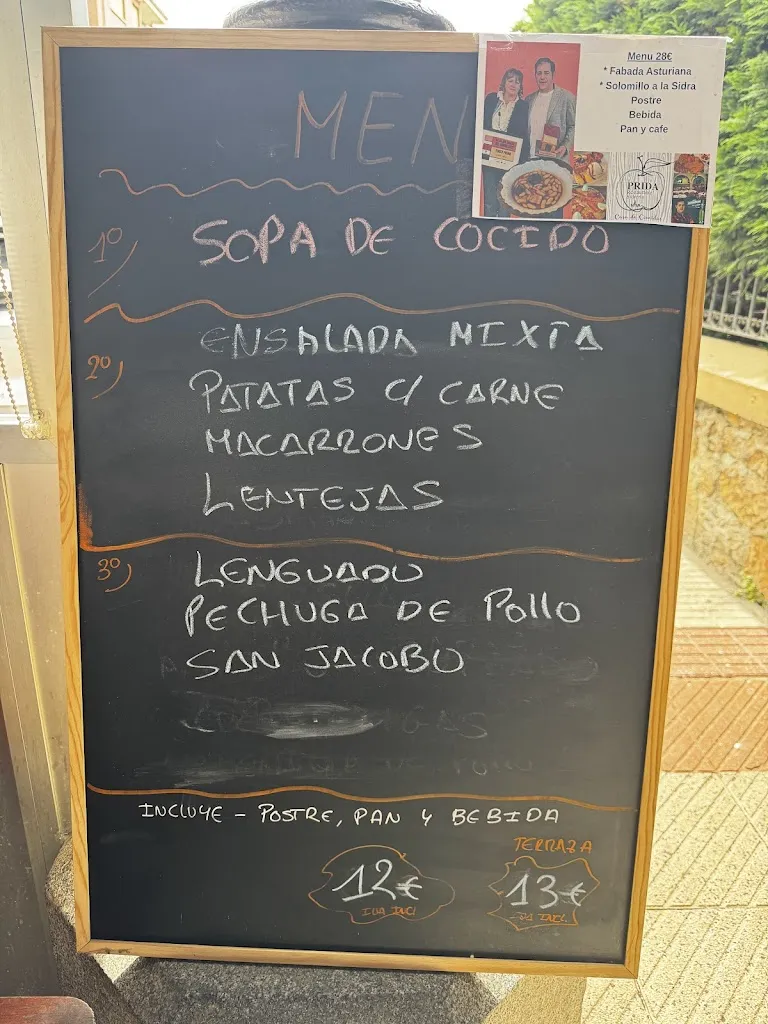 MEN
Menu 28€
* Fabada Asturiana
* Solomillo a la Sidra
Postre
Bebida
Pan y cafe
PRIDA
1º) SOPA DE COCIDO
2º) ENSALADA MIXTA
PATATAS C/ CARNE
MACARRONES
LENTEJAS
3º) LENGUADO
PECHUGA DE POLLO
SAN JACOBO
INCLUYE - POSTRE, PAN Y BEBIDA
TERRAZA
12€ 13€
IVA INCL IVA INCL.